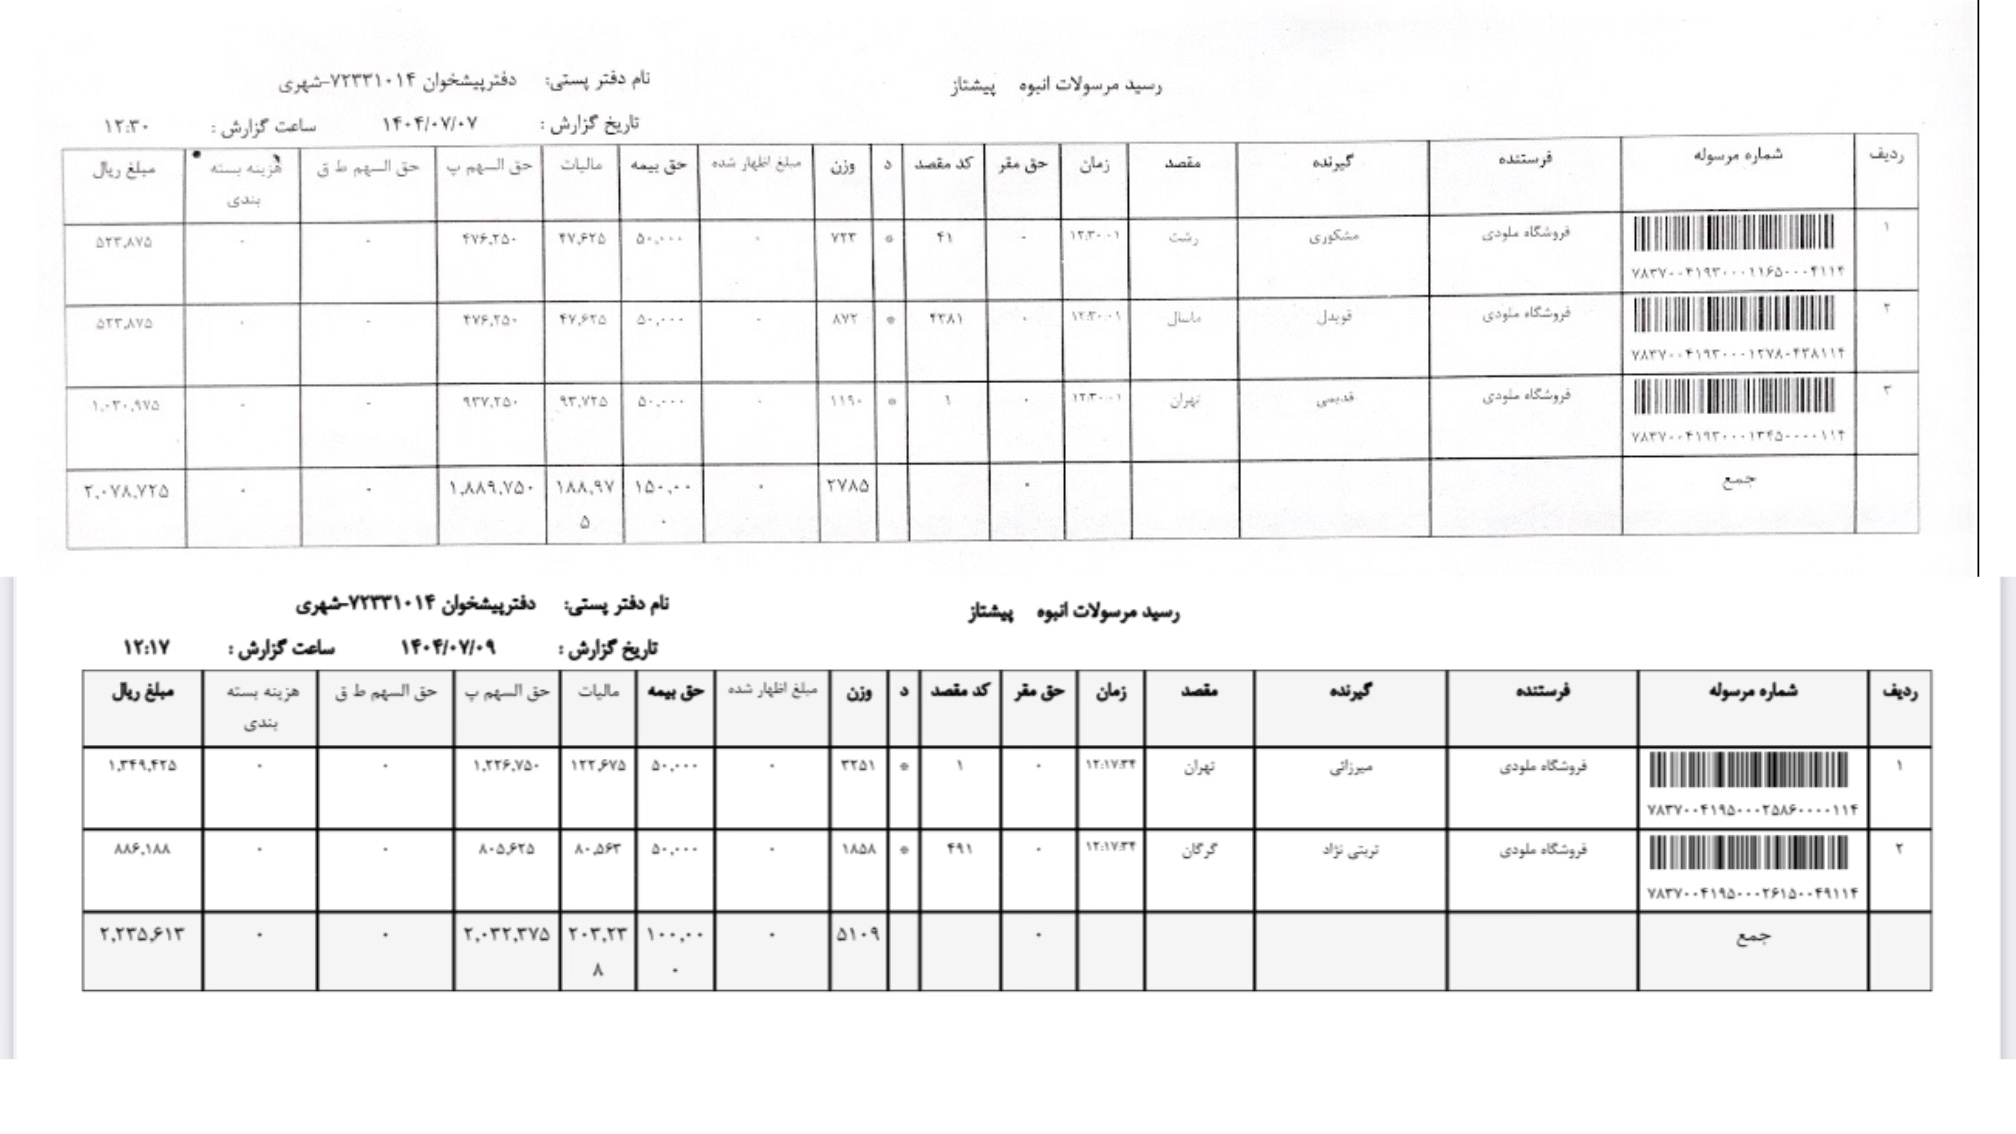 رسید مرسولات انبوه پیشتاز نام دفتر پستی: دفترپیشخوان ۷۲۳۳۱۰۱۴-شهری
تاریخ گزارش : ۱۴۰۴/۰۷/۰۷ ساعت گزارش : ۱۲:۳۰
ردیف شماره مرسوله فرستنده گیرنده مقصد زمان حق مقر کد مقصد د وزن مبلغ اظهار شده حق بیمه مالیات حق السهم پ حق السهم ط ق هزینه بسته مبلغ ریال
بندی
۱ فروشگاه ملودی مشکوری رشت ۱۲:۳۰:۰۱ ۰ ۴۱ * ۷۲۳ ۰ ۵۰,۰۰۰ ۴۷,۶۲۵ ۴۷۶,۲۵۰ ۰ ۰ ۵۲۳,۸۷۵
۷۸۳۷۰۰۴۱۹۳۰۰۰۱۱۶۵۰۰۰۴۱۱۴
۲ فروشگاه ملودی قویدل ماسال ۱۲:۳۰:۰۱ ۰ ۴۳۸۱ * ۸۷۲ ۰ ۵۰,۰۰۰ ۴۷,۶۲۵ ۴۷۶,۲۵۰ ۰ ۰ ۵۲۳,۸۷۵
۷۸۳۷۰۰۴۱۹۳۰۰۰۱۲۷۸۰۴۳۸۱۱۴
۳ فروشگاه ملودی قدیمی تهران ۱۲:۳۰:۰۱ ۰ ۱ * ۱۱۹۰ ۰ ۵۰,۰۰۰ ۹۳,۷۲۵ ۹۳۷,۲۵۰ ۰ ۰ ۱,۰۳۰,۹۷۵
۷۸۳۷۰۰۴۱۹۳۰۰۰۱۳۴۵۰۰۰۰۱۱۴
جمع ۰ ۲۷۸۵ ۰ ۱۵۰,۰۰ ۱۸۸,۹۷ ۱,۸۸۹,۷۵۰ ۰ ۰ ۲,۰۷۸,۷۲۵
۰ ۵
رسید مرسولات انبوه پیشتاز نام دفتر پستی: دفترپیشخوان ۷۲۳۳۱۰۱۴-شهری
تاریخ گزارش : ۱۴۰۴/۰۷/۰۹ ساعت گزارش : ۱۲:۱۷
ردیف شماره مرسوله فرستنده گیرنده مقصد زمان حق مقر کد مقصد د وزن مبلغ اظهار شده حق بیمه مالیات حق السهم پ حق السهم ط ق هزینه بسته مبلغ ریال
بندی
۱ فروشگاه ملودی میرزائی تهران ۱۲:۱۷:۳۴ ۰ ۱ * ۳۲۵۱ ۰ ۵۰,۰۰۰ ۱۲۲,۶۷۵ ۱,۲۲۶,۷۵۰ ۰ ۰ ۱,۳۴۹,۴۲۵
۷۸۳۷۰۰۴۱۹۵۰۰۰۲۵۸۶۰۰۰۰۱۱۴
۲ فروشگاه ملودی تربتی نژاد گرگان ۱۲:۱۷:۳۴ ۰ ۴۹۱ * ۱۸۵۸ ۰ ۵۰,۰۰۰ ۸۰,۵۶۳ ۸۰۵,۶۲۵ ۰ ۰ ۸۸۶,۱۸۸
۷۸۳۷۰۰۴۱۹۵۰۰۰۲۶۱۵۰۰۴۹۱۱۴
جمع ۰ ۵۱۰۹ ۰ ۱۰۰,۰۰ ۲۰۳,۲۳ ۲,۰۳۲,۳۷۵ ۰ ۰ ۲,۲۳۵,۶۱۳
۰ ۸